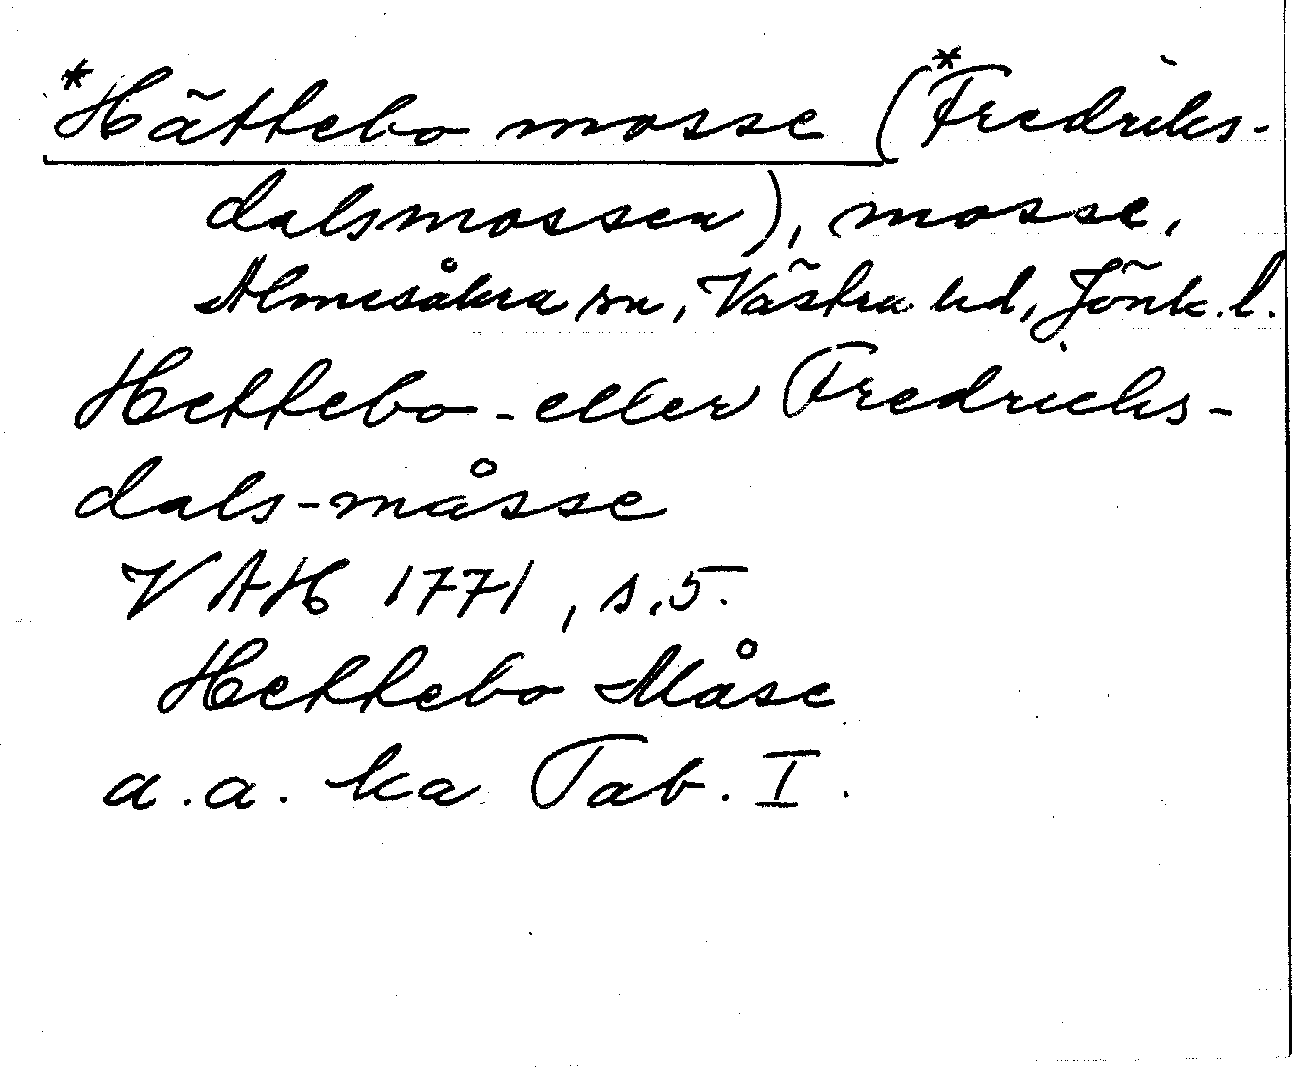 *Hättebo mosse (*Fredriks-
dalsmossen), mosse,
Almesåkra sn, Västra hd, Jönk. l.
Hettebo- eller Fredrichs-
dals-måsse
VAH 1771, s. 5.
Hettebo Måse
a. a. ka Tab. I.